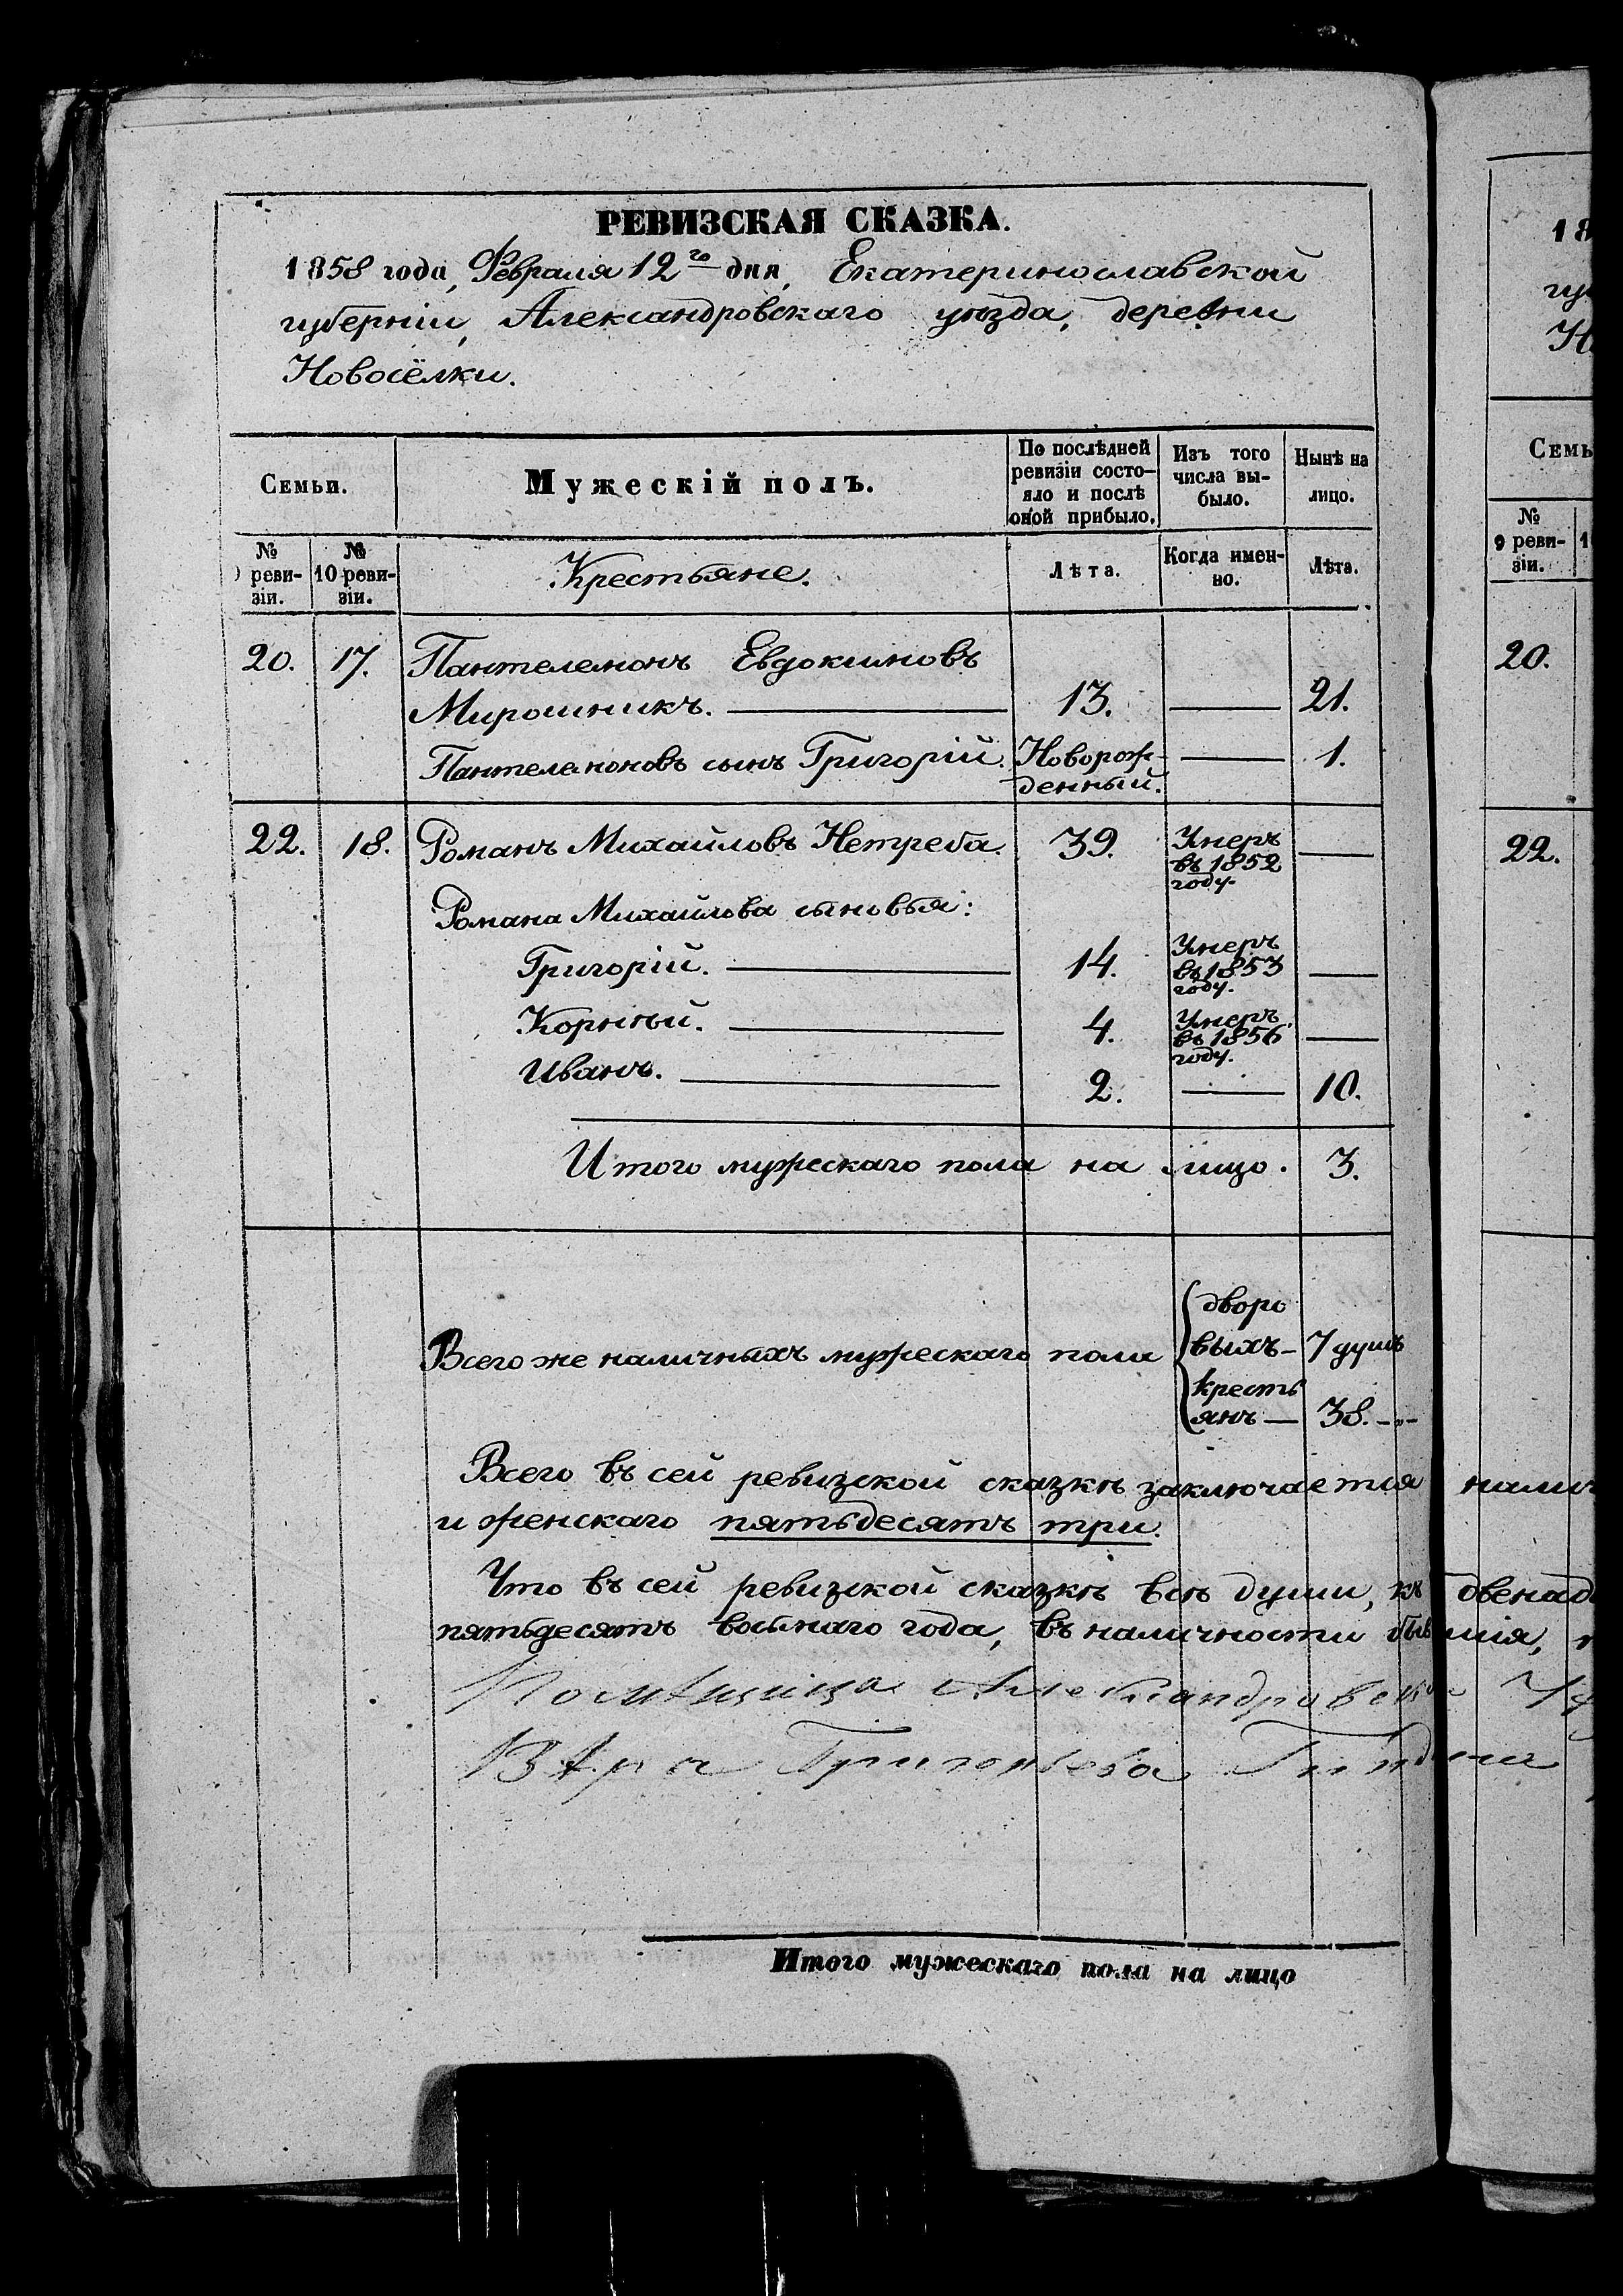 РЕВИЗСКАЯ СКАЗКА.
1858 года, Февраля 12го дня, Екатеринославской
губерніи, Александровскаго уѣзда, деревни
Новосёлки.
Семьи.
Мужескій полъ.
По послѣдней ревизіи состояло и послѣ оной прибыло.
Изъ того числа выбыло.
Нынѣ на лицо.
№ 9 ревизіи.
№ 10 ревизіи.
Крестьяне.
Лѣта.
Когда именно.
Лѣта.
20. 17. Пантелемонъ Евдокимовъ
Мирошникъ. — 13. — 21.
Пантелемоновъ сынъ Григорій. Новорожденный. — 1.
22. 18. Романъ Михайловъ Нетреба. 39. Умеръ въ 1852 году. —
Романа Михайлова сыновья:
Григорій. — 14. Умеръ въ 1853 году. —
Корнѣй. — 4. Умеръ въ 1856 году. —
Иванъ. — 2. — 10.
Итого мужескаго пола на лицо. 3.
Всего же наличныхъ мужескаго пола
дворовыхъ — 7 душъ
крестьянъ — 38. -„-
Всего въ сей ревизской сказкѣ заключается
и женскаго пятьдесятъ три.
Что въ сей ревизской сказкѣ всѣ души, къ
пятьдесятъ восьмаго года, въ наличности бывшія,
Помѣщица Александровск
Вѣра Григорьева
Итого мужескаго пола на лицо
18
Семь
№ 9 ревизіи.
20.
22.